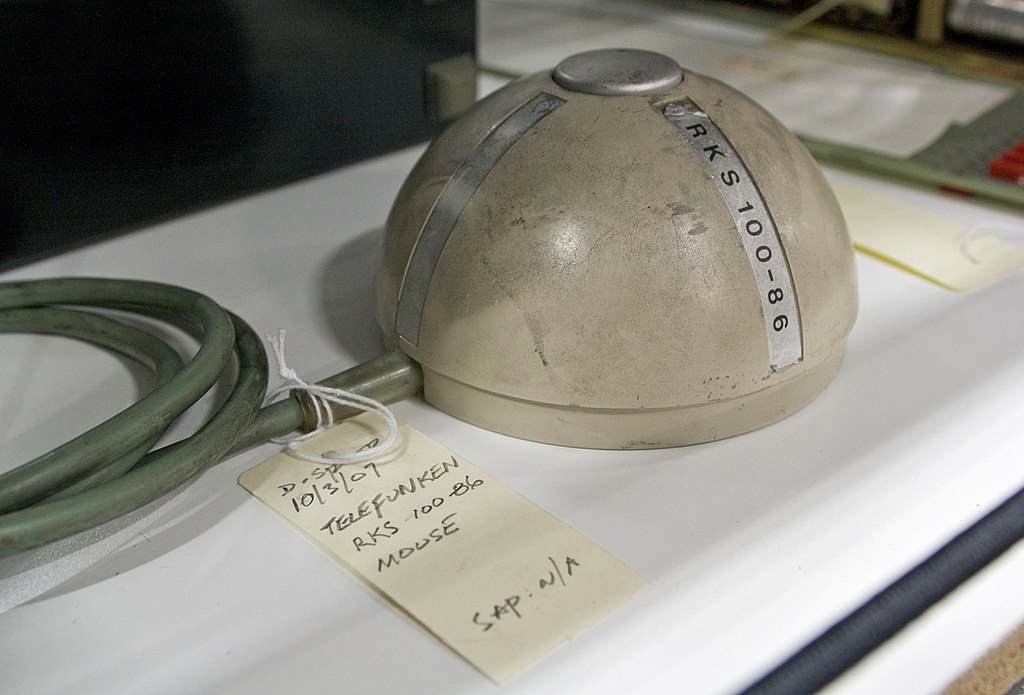 RKS 100-86
10/3/07
TELEFUNKEN
RKS 100-86
MOUSE
SAP: N/A